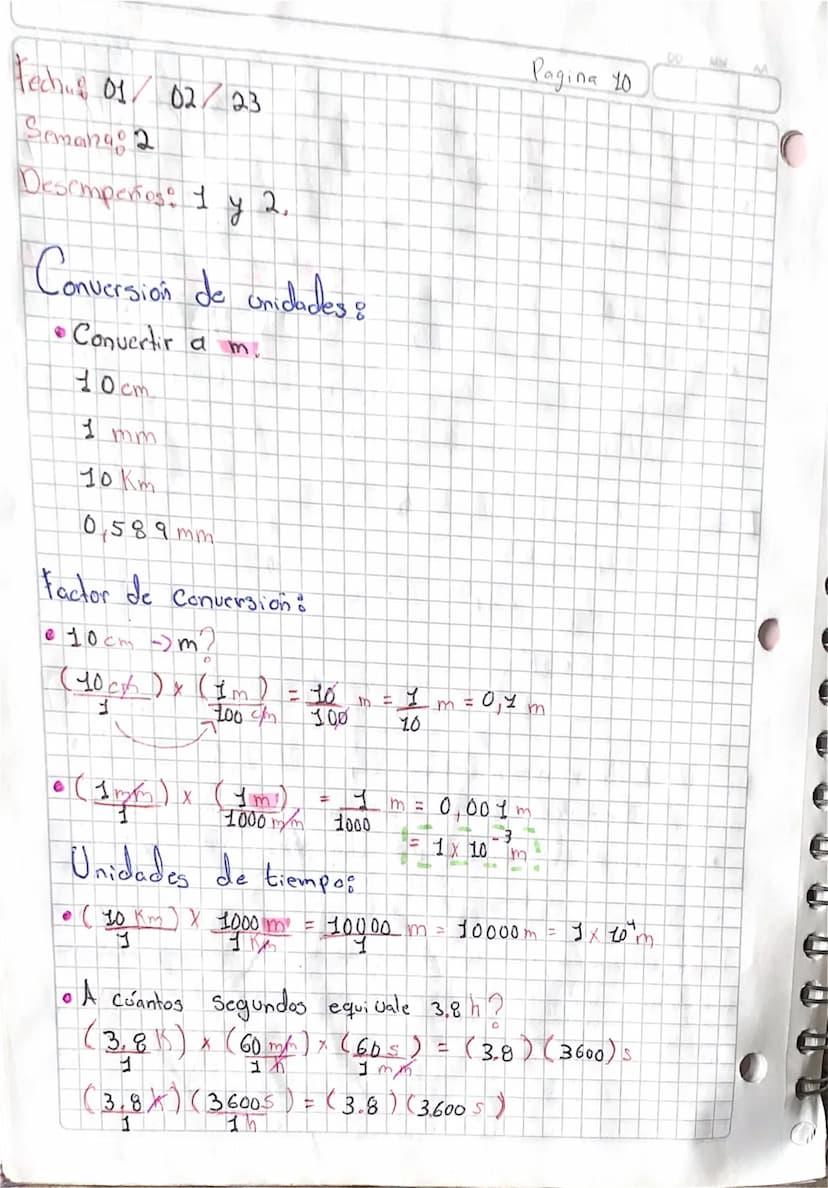 Pagina 10
DD MM AA
Fecha: 01/ 02/ 23
Semana: 2
Desempeños: 1 y 2.
Conversión de unidades:
• Convertir a m.
10 cm
1 mm
10 Km
0,589 mm
Factor de conversión:
• 10 cm -> m?
(10 cm / 1) x (1 m / 100 cm) = 10/100 m = 1/10 m = 0,1 m
• (1 mm / 1) x (1 m / 1000 mm) = 1/1000 m = 0,001 m
= 1 x 10⁻³ m
Unidades de tiempo:
• (10 Km / 1) x 1000 m / 1 Km = 10000/1 m = 10000 m = 1 x 10⁴ m
• A cúantos segundos equivale 3.8 h?
(3.8 h / 1) x (60 min / 1 h) x (60 s / 1 min) = (3.8) (3600) s
(3.8 h / 1) (3600 s / 1 h) = (3.8) (3600 s)